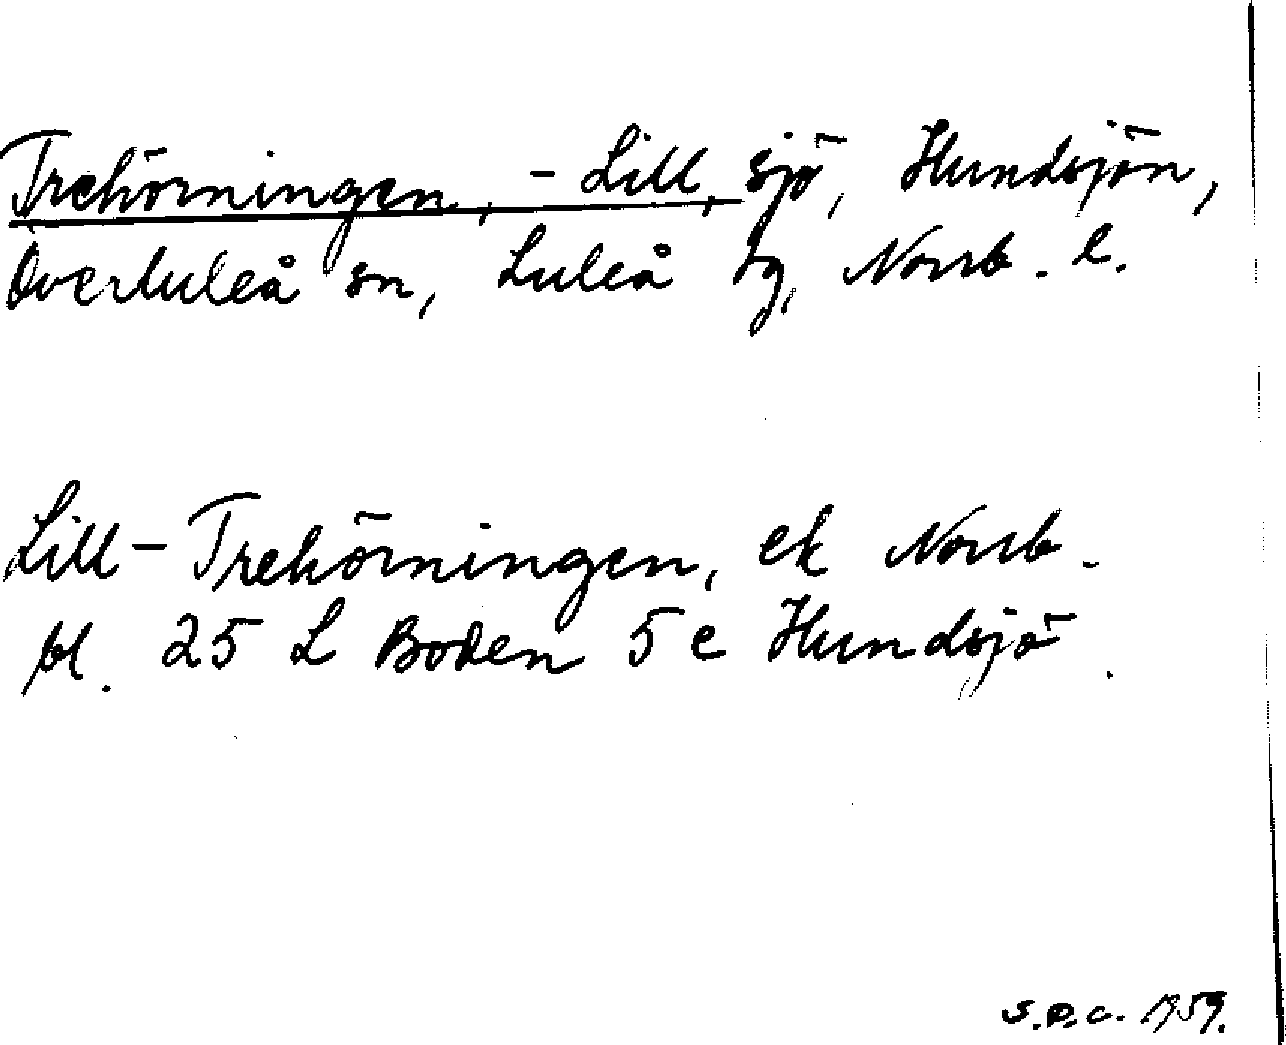 Trehörningen, - Lill, sjö, Hundsjön,
Överluleå sn, Luleå tg, Norrb. l.
Lill-Trehörningen, ek Norrb.
bl. 25 L Boden 5 c Hundsjö.
S.D.C. 1959.